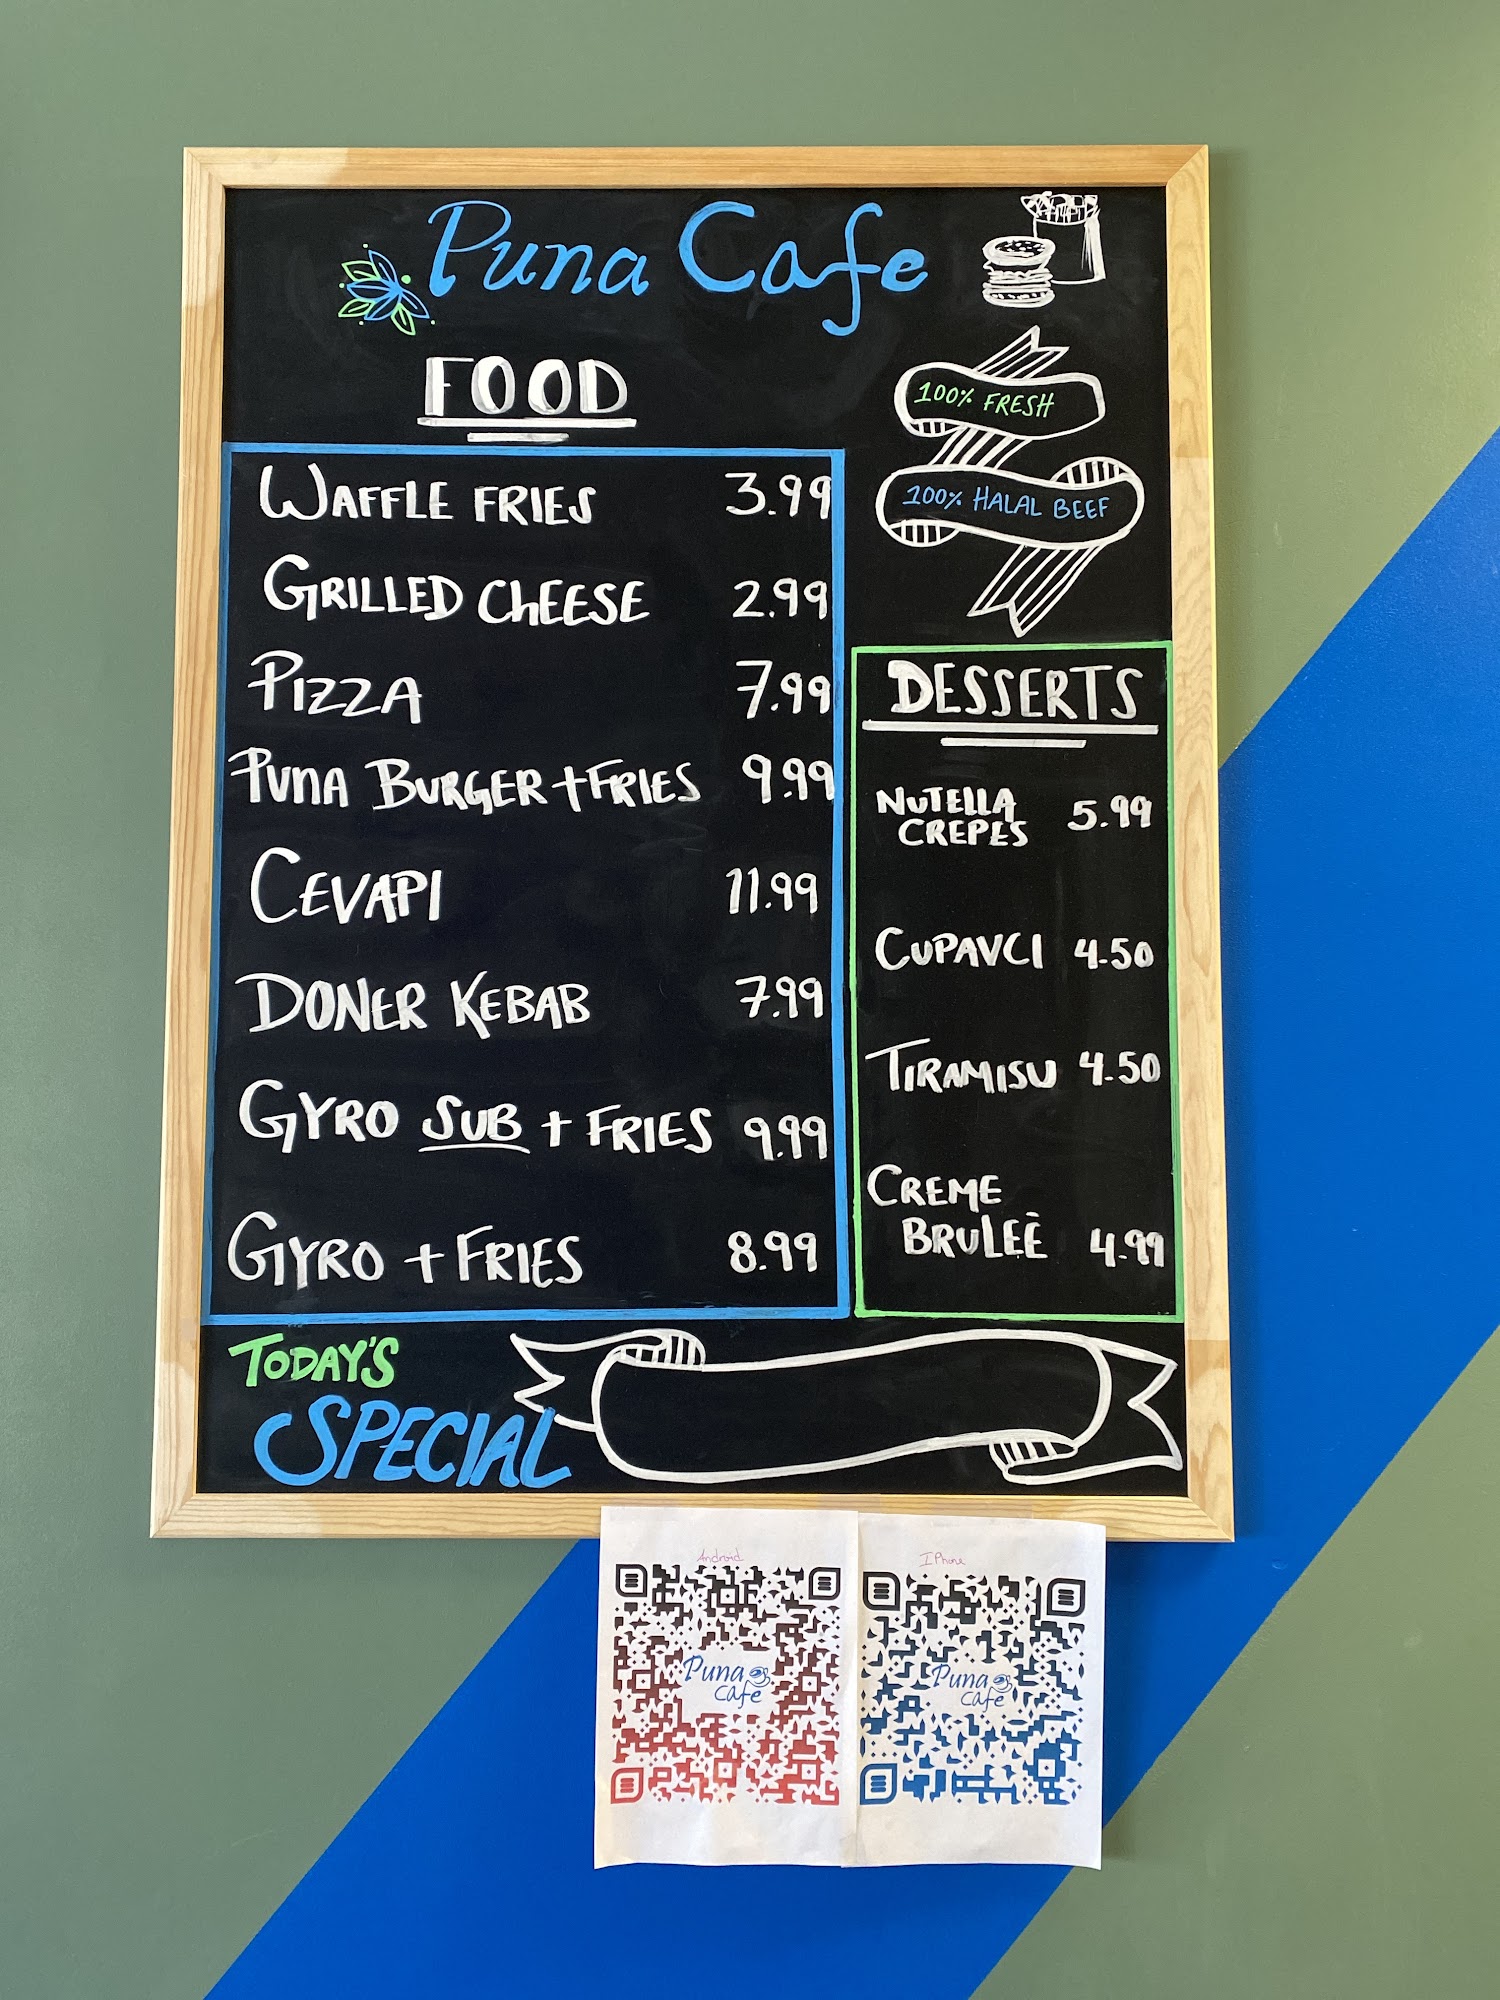 Puna Cafe
FOOD
100% FRESH
100% HALAL BEEF
WAFFLE FRIES 3.99
GRILLED CHEESE 2.99
PIZZA 7.99
PUNA BURGER + FRIES 9.99
CEVAPI 11.99
DONER KEBAB 7.99
GYRO SUB + FRIES 9.99
GYRO + FRIES 8.99
DESSERTS
NUTELLA
CREPES 5.99
CUPAVCI 4.50
TIRAMISU 4.50
CREME
BRULEÈ 4.99
TODAY'S
SPECIAL
Android
IPhone
Puna
Cafe
Puna
Cafe